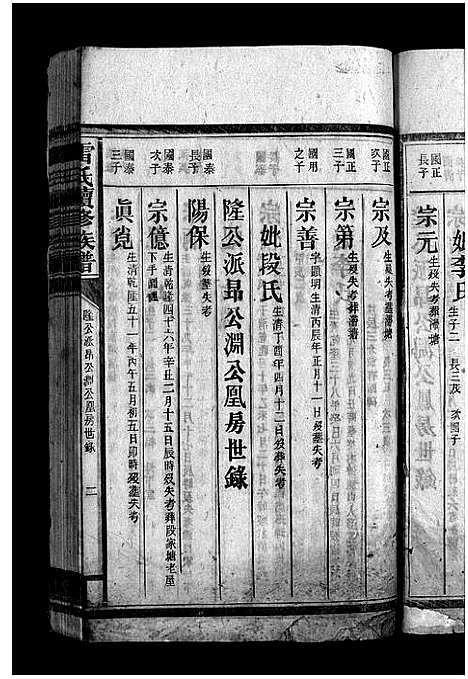 國正長子
宗元 生殁失考葬潞塘
國正次子
宗及 生殁失考葬潞塘
國正三子
宗第 生殁失考葬潞塘
國用之子
宗善 字顯明生清丙辰年正月十一日殁墓失考
妣段氏 生清丁酉年四月十二日殁葬失考
隆公派昂公淵公凰房世錄
國泰長子
陽保 生殁墓失考
國泰次子
宗億 生清乾隆四十六年辛丑二月十五日辰時殁失考葬段家塘老屋下手
國泰三子
眞覓 生清乾隆五十一年丙午五月初五日卯時殁墓失考
雷氏續修族譜
隆公派昂公淵公凰房世錄
二